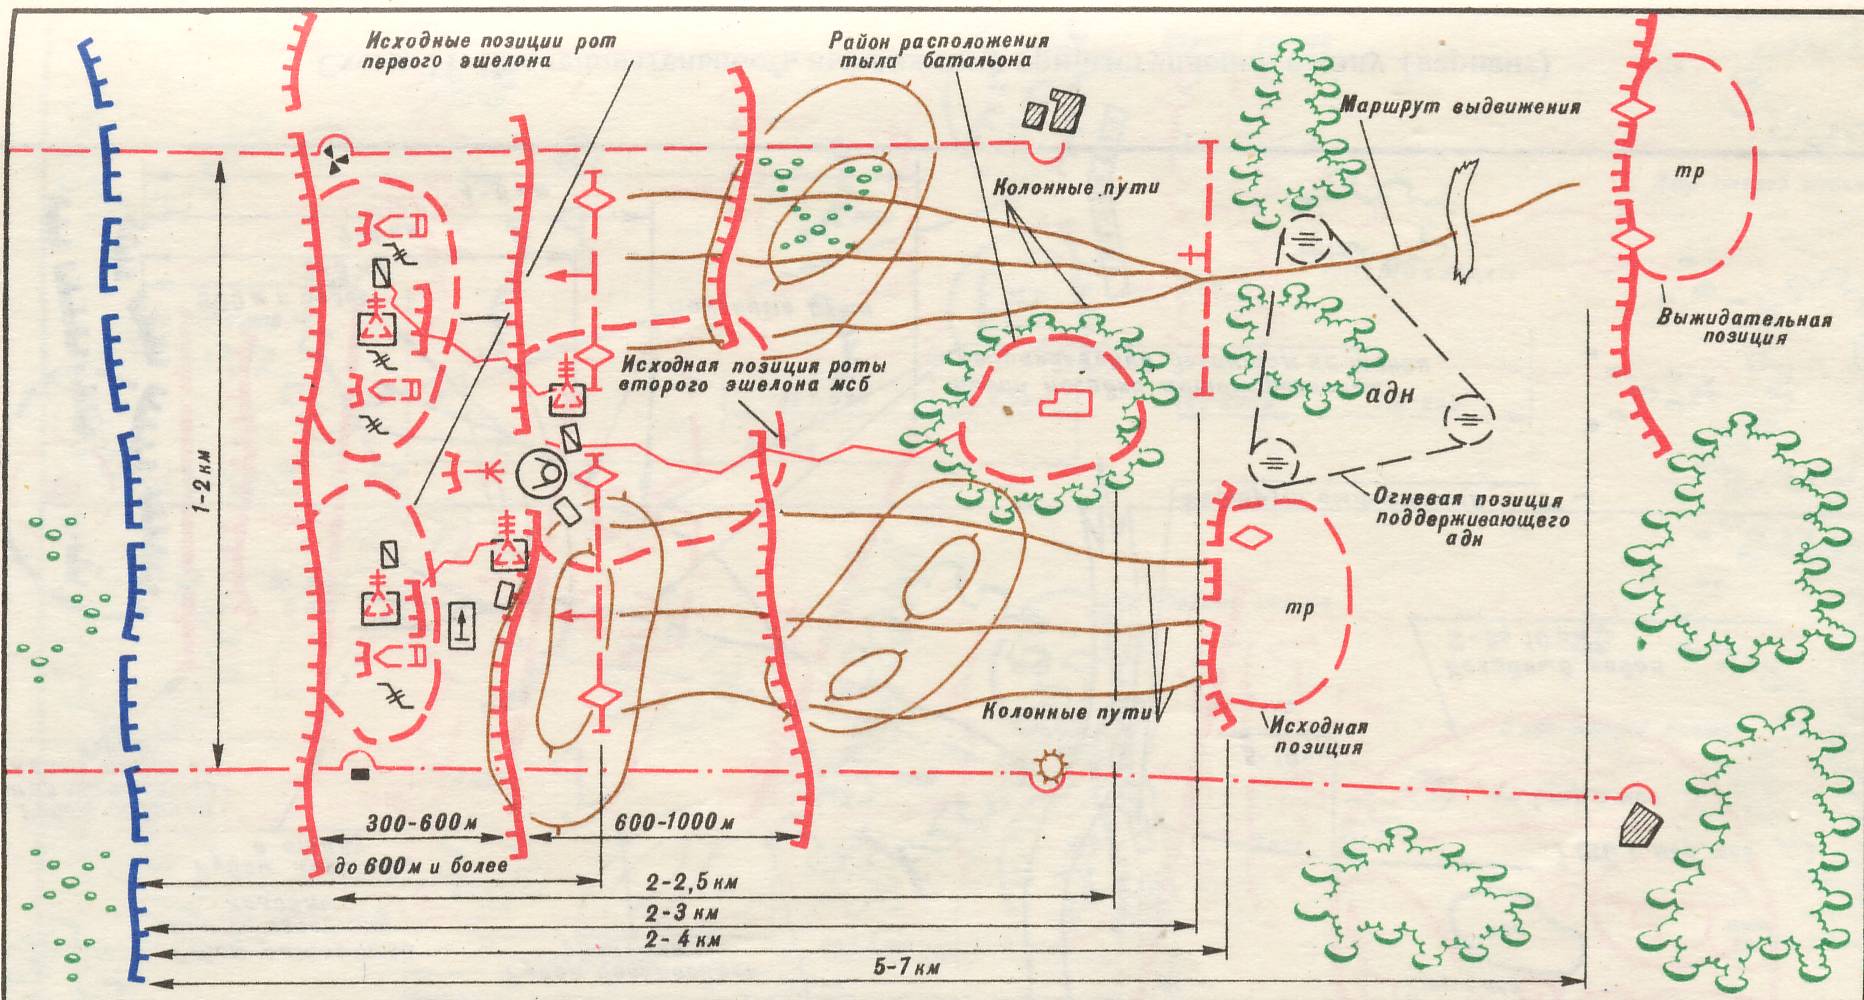 Исходные позиции рот
первого эшелона
Район расположения
тыла батальона
Маршрут выдвижения
тр
Колонные пути
Выжидательная
позиция
Исходная позиция роты
второго эшелона мсб
адн
1-2 км
Огневая позиция
поддерживающего
адн
тр
Колонные пути
Исходная
позиция
300-600 м
600-1000 м
до 600 м и более
2-2,5 км
2-3 км
2-4 км
5-7 км